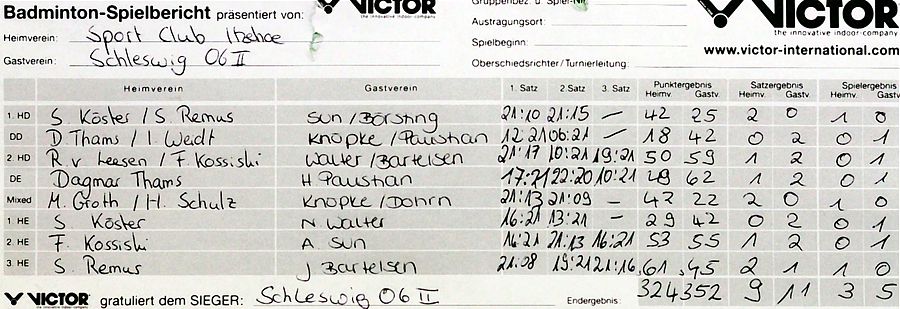 Badminton-Spielbericht präsentiert von: VICTOR
the innovative indoor-company
Heimverein: Sport Club Itzehoe
Gastverein: Schleswig 06 II
Austragungsort:
Spielbeginn:
Oberschiedsrichter/Turnierleitung:
VICTOR
the innovative indoor-company
www.victor-international.com
Heimverein Gastverein 1. Satz 2. Satz 3. Satz Punktergebnis Satzergebnis Spielergebnis
Heimv. Gastv. Heimv. Gastv. Heimv. Gastv.
1. HD S. Köster / S. Remus Sun / Börsting 21:10 21:15 — 42 25 2 0 1 0
DD D. Thams / I. Weidt Knopke / Paustian 12:21 06:21 — 18 42 0 2 0 1
2. HD R. v Leesen / F. Kossiski Walter / Bartelsen 21:17 10:21 19:21 50 59 1 2 0 1
DE Dagmar Thams H Paustian 17:21 22:20 10:21 49 62 1 2 0 1
Mixed M. Groth / H. Schulz Knopke / Dohrn 21:13 21:09 — 42 22 2 0 1 0
1. HE S. Köster N Walter 16:21 13:21 — 29 42 0 2 0 1
2. HE F. Kossiski A Sun 16:21 21:13 16:21 53 55 1 2 0 1
3. HE S. Remus J Bartelsen 21:08 19:21 21:16 61 45 2 1 1 0
VICTOR gratuliert dem SIEGER: Schleswig 06 II Endergebnis: 324 352 9 11 3 5